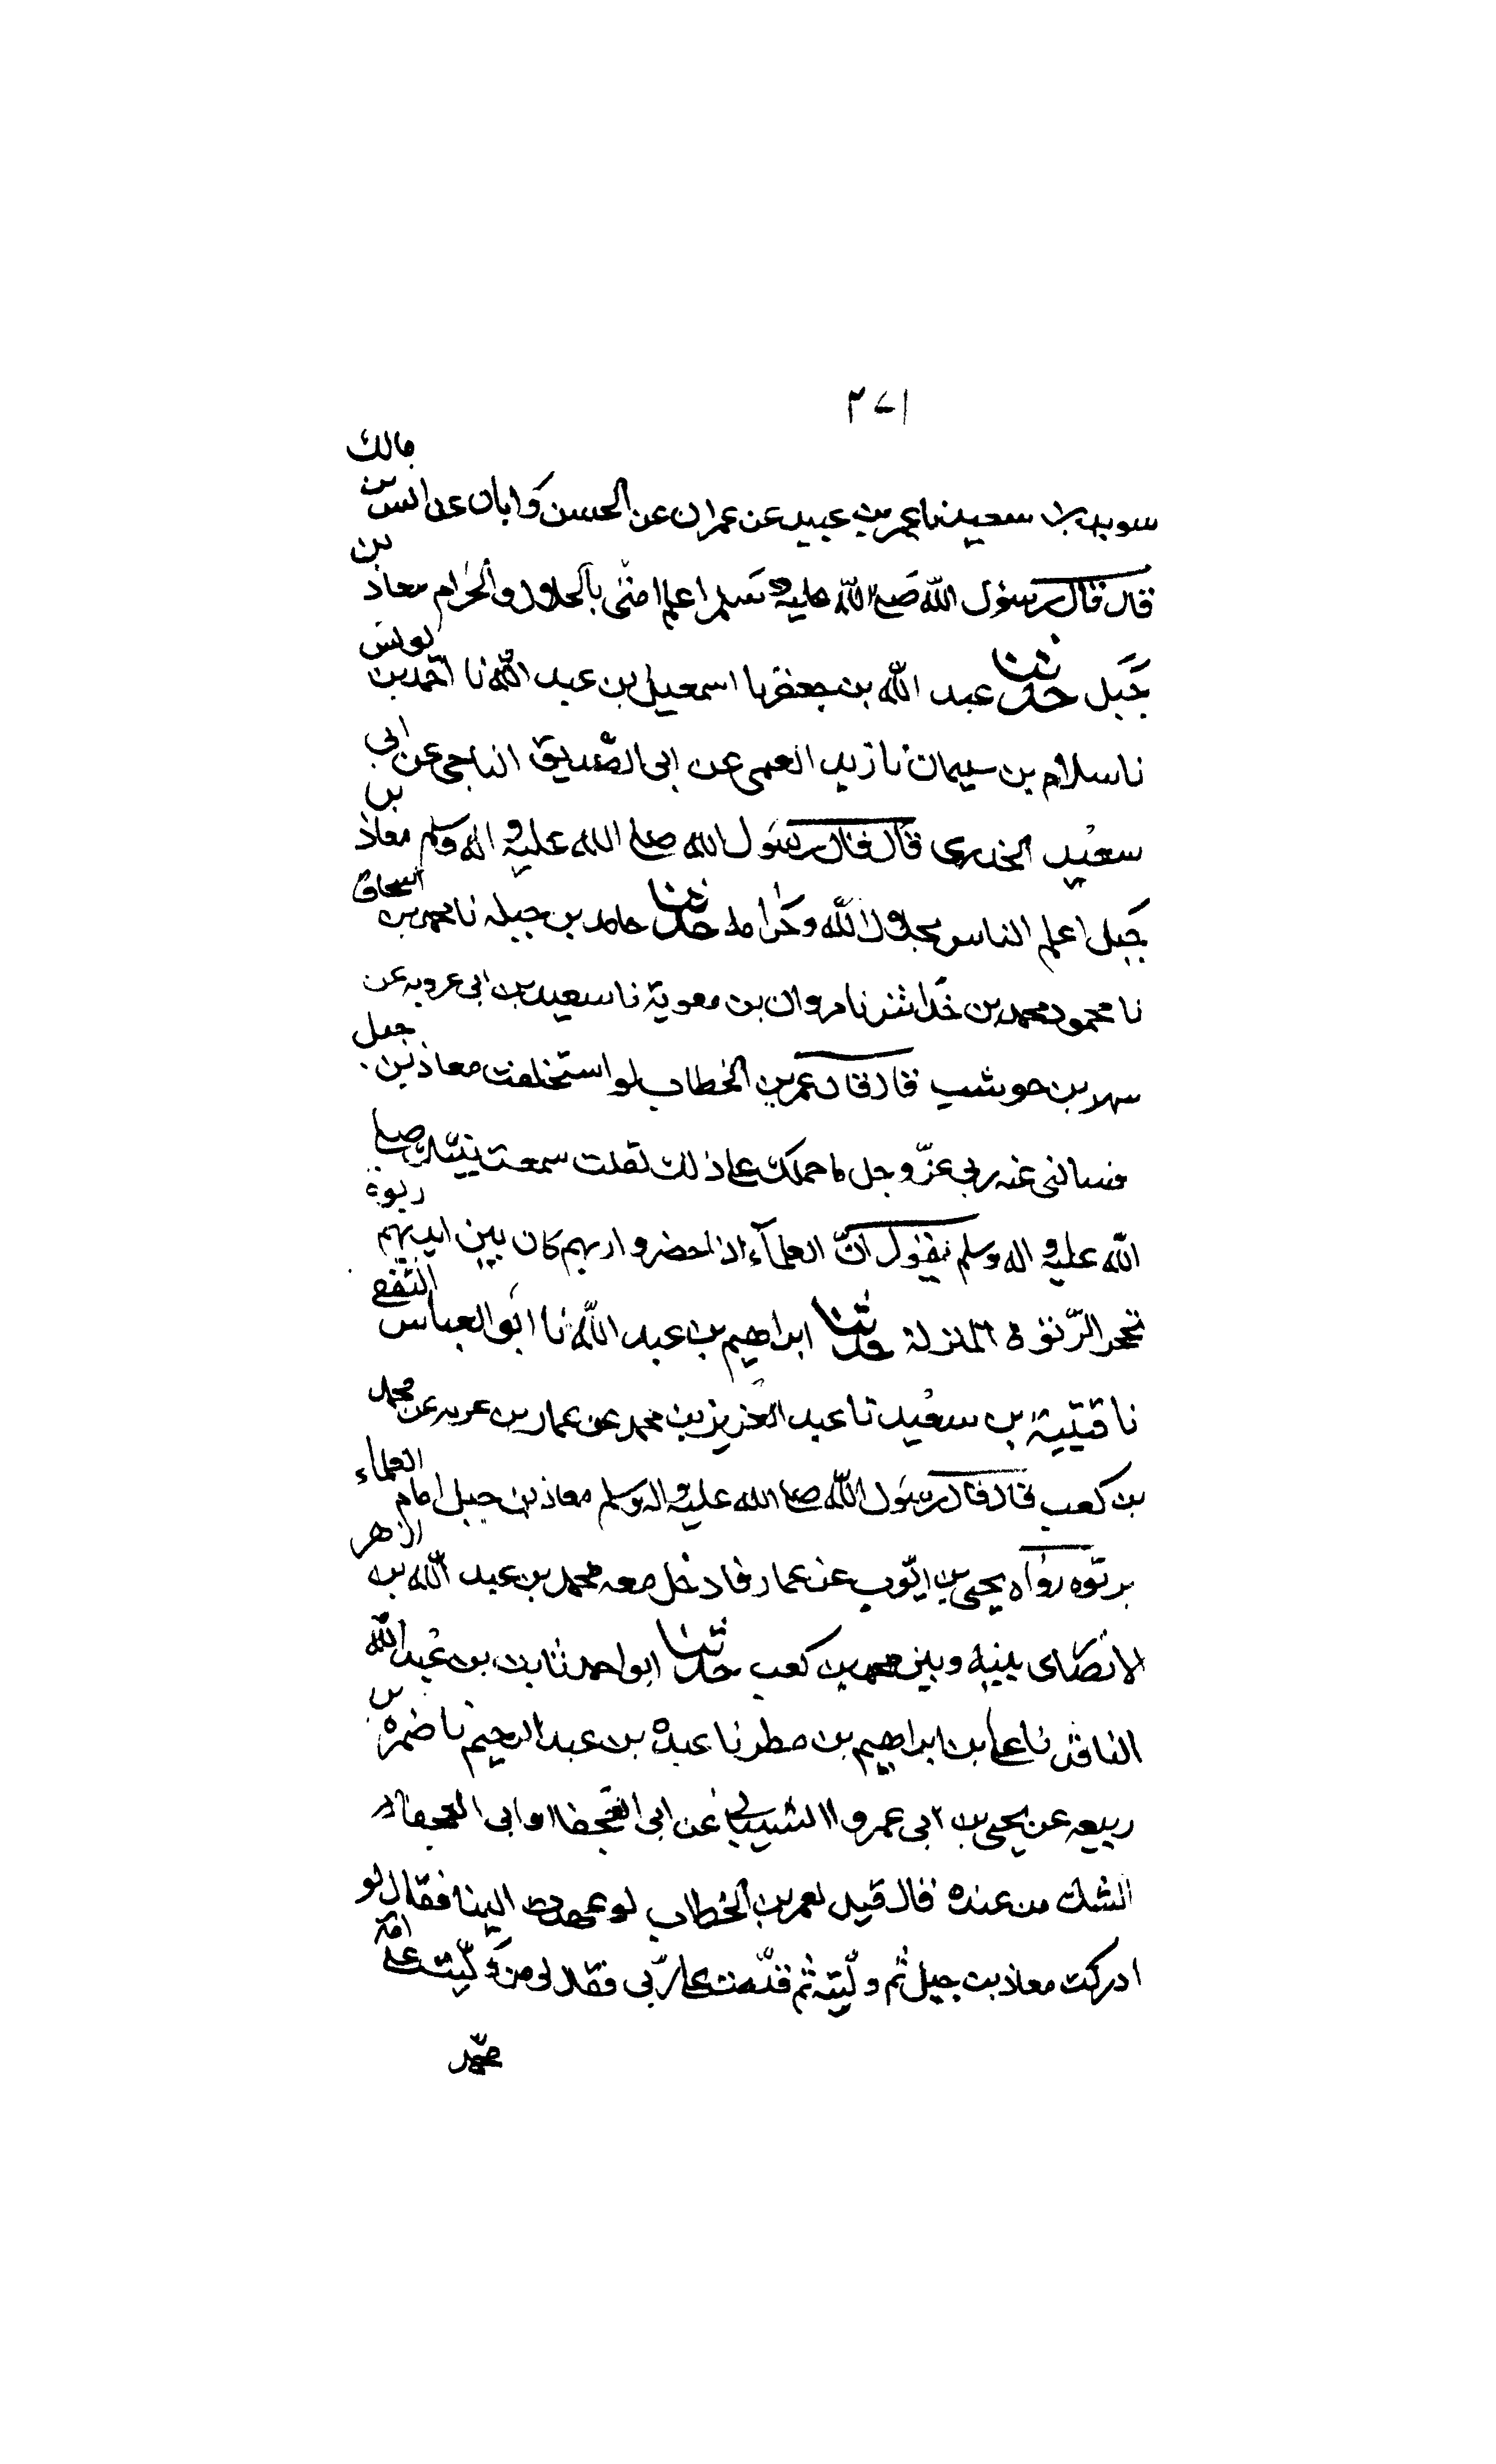 ٢٧١
سويد بن سعيد نا عمر بن عبيد عن عمران عن الحسن و ابان عن انس بن مالك
قال قال رسول الله صلى الله عليه وسلم اعلم امتى بالحلال والحرام معاذ بن
جبل حدثنا عبد الله بن جعفر نا اسمعيل بن عبد الله نا احمد بن يونس
نا سلام بن سليمان نا زيد العمى عن ابى الصديق الناجى عن ابى
سعيد الخدرى قال قال رسول الله صلى الله عليه و اله وسلم معاذ بن
جبل اعلم الناس بحلال الله وحرامه حدثنا حامد بن جبله نا محمد بن اسحاق
نا محمود محمد بن خداش نا مروان بن معوية نا سعيد بن ابى عروبه عن
شهر بن حوشب قال قال عمر بن الخطاب لو استخلفت معاذ بن جبل
فسالنى عنه ربى عز وجل ما حملك على ذلك لقلت سمعت نبيك صلى
الله عليه و اله وسلم يقول ان العلماء اذا حضروا ربهم كان بين ايديهم ربوة
بحجر حدثنا ابراهيم بن عبد الله نا ابو العباس الثقفى
نا قتيبة بن سعيد نا عبد العزيز بن محمد عن عمار بن غزيه عن محمد
بن كعب قال قال رسول الله صلى الله عليه و اله وسلم معاذ بن جبل امام العلماء
برتوه رواه يحيى بن ايوب عن عمار فادخل معه محمد بن عبد الله بن الازهر
الانصارى بينه وبين محمد بن كعب حدثنا ابو احمد ثابت بن عبد الله
الناقد نا على بن ابراهيم بن مطر نا عبدة بن عبد الرحيم نا ضمرة بن
ربيعه عن يحيى بن ابى عمرو الشيبانى عن ابى العجفا او ابى العجفاء
الشك من عنده قال قيل لعمر بن الخطاب لو عهدت الينا فقال لو
ادركت معاذ بن جبل ثم وليته ثم قدمت على ربى فقال لى من وليت على امة
محمد